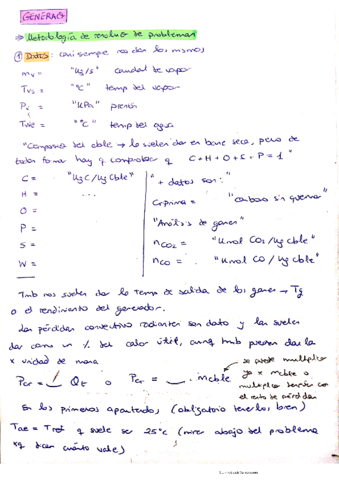 GENERAL
⇒ Metodología de resolución de problemas
① DATOS: casi siempre nos dan los mismos
mv = "Kg/s" caudal de vapor
Tvs = "°C" temp del vapor
Pv = "KPa" presión
Twe = "°C" temp del agua
"Composición del cble → lo suelen dar en base seca, pero de
todas formas hay q comprobar q C+H+O+S+P=1"
C = "Kg C/Kg cble"
H = ...
O =
P =
S =
W =
"+ datos son:"
Cr prima = "carbono sin quemar"
"Análisis de gases"
nCO2 = "Kmol CO2/Kg cble"
nCO = "Kmol CO/Kg cble"
Tmb nos suelen dar la temp de salida de los gases → Tg
o el rendimiento del generador.
Las pérdidas convectivo radiantes son dato y las suelen
dar como un % del calor útil, aunq tmb pueden darla
x unidad de masa
Pcr = __ Qt o Pcr = __ . mcble
se puede multiplicar
ya x mcble o
multiplicar después con
el resto de pérdidas
En los primeros apartados, (obligatorio tenerlos bien)
Tae = Tref q suele ser 25°C (mirar abajo del problema
xq dicen cuánto vale)